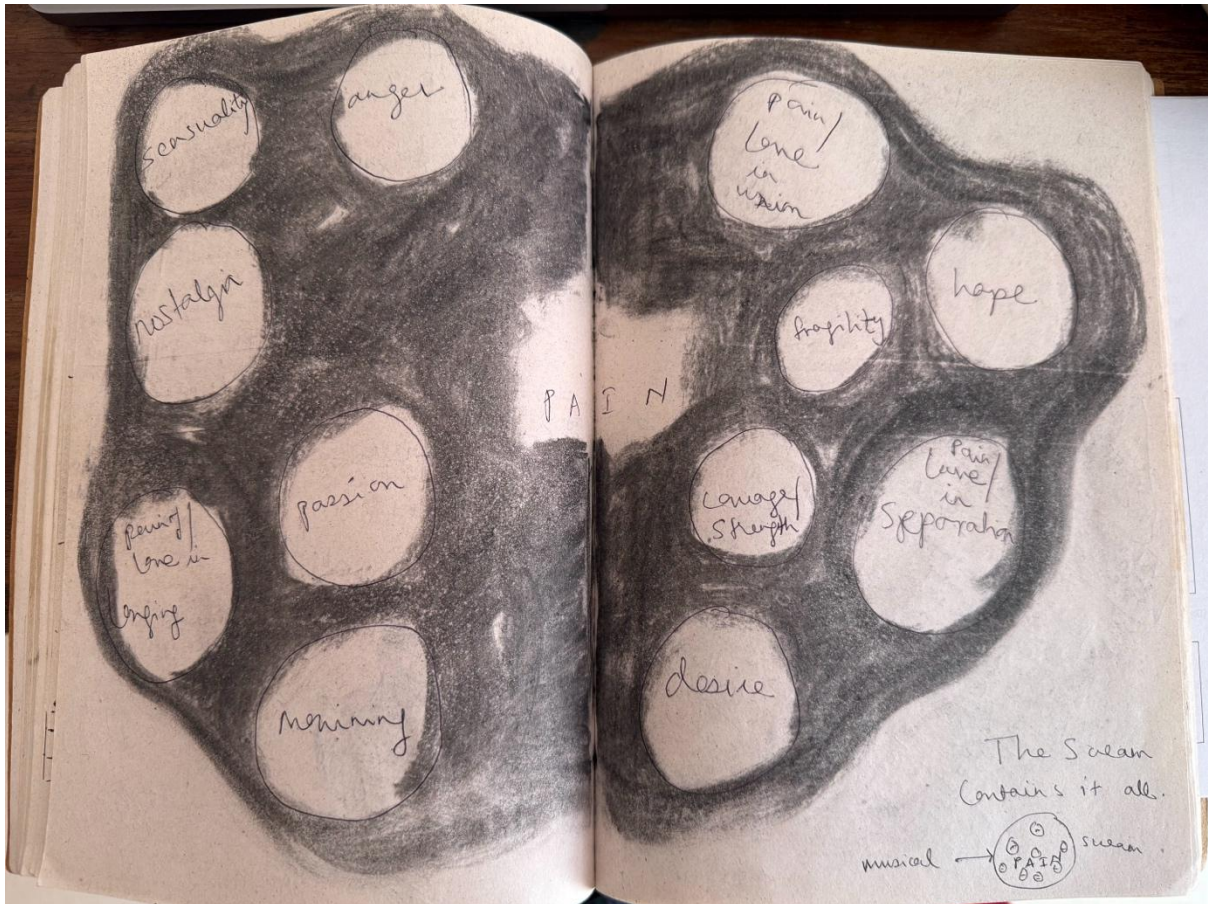 sensuality
anger
nostalgia
passion
pain/
love in
longing
PAIN
pain/
love
in
union
hope
fragility
courage/
strength
pain/
love/
in
separation
desire
The Scream
Contains it all.
musical
PAIN
scream.